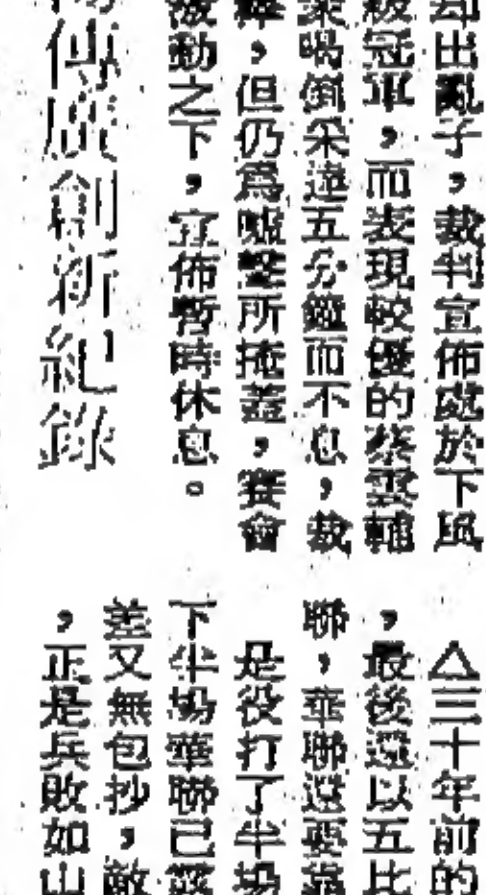 却出亂子，裁判宣佈處於下風
級冠軍，而表現較優的蔡雲輔
喝倒采達五分鐘而不息，裁
，但仍爲噓聲所掩蓋，賽會
激動之下，宣佈暫時休息。
傳廣創新紀錄
△三十年前的
，最後還以五比
聯，華聯還要靠
是役打了半場
下半場華聯已落
差又無包抄，敵
，正是兵敗如山